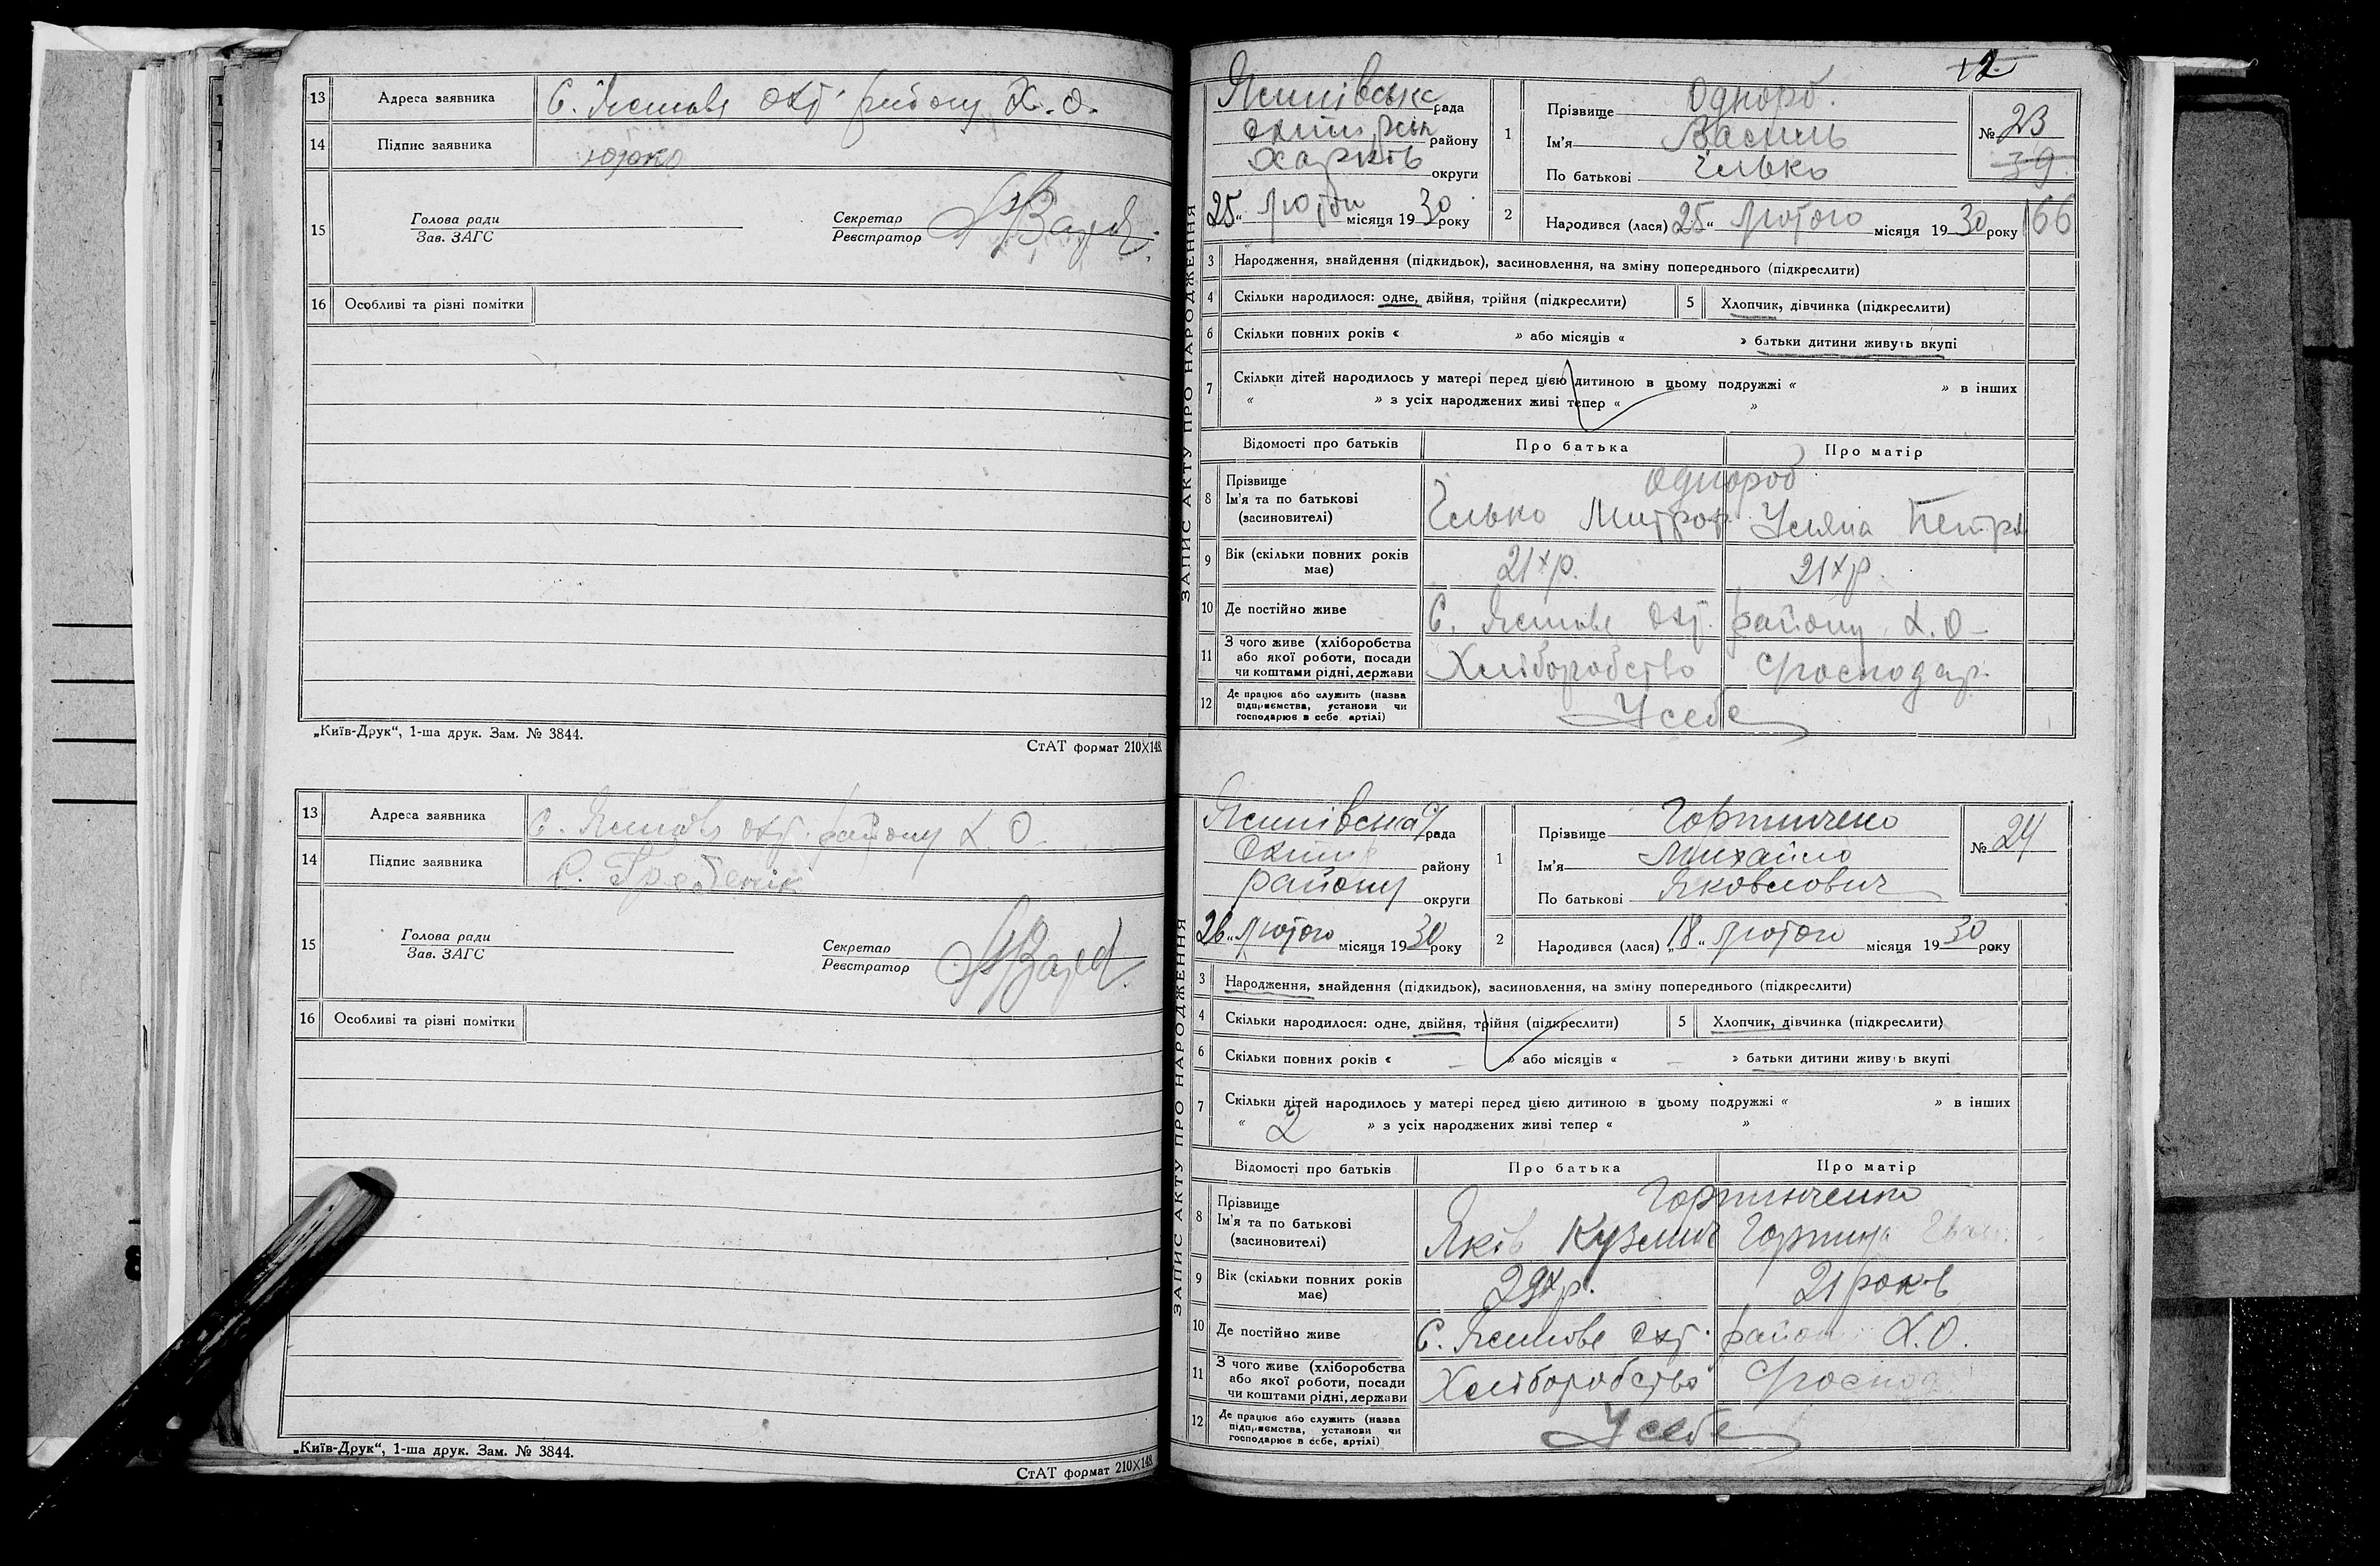 13 Адреса заявника С. Ясенове Охт. району Х. О.
14 Підпис заявника
15 Голова ради
Зав. ЗАГС
Секретар
Реєстратор
16 Особливі та різні помітки
„Київ-Друк“, 1-ша друк. Зам. № 3844.
СтАТ формат 210X148
13 Адреса заявника С. Ясенове Охт. району Х. О.
14 Підпис заявника С. Гребенік
15 Голова ради
Зав. ЗАГС
Секретар
Реєстратор
16 Особливі та різні помітки
„Київ-Друк“, 1-ша друк. Зам. № 3844.
СтАТ формат 210X148
12
ЗАПИС АКТУ ПРО НАРОДЖЕННЯ
рада
району
Харків округи
25 “ місяця 1930 року
1 Прізвище Однороб.
Ім'я Василь
По батькові Ілько
№ 23
39
2 Народився (лася) 25 “ лютого місяця 1930 року 166
3 Народження, знайдення (підкидьок), засиновлення, на зміну попереднього (підкреслити)
4 Скільки народилося: одне, двійня, трійня (підкреслити) 5 Хлопчик, дівчинка (підкреслити)
6 Скільки повних років « » або місяців « » батьки дитини живуть вкупі
7 Скільки дітей народилось у матері перед цією дитиною в цьому подружжі « » в інших
« » з усіх народжених живі тепер « »
Відомості про батьків Про батька Про матір
8 Прізвище Однороб
Ім'я та по батькові Ілько Митроф. Уляна Петр
(засиновителі)
9 Вік (скільки повних років має) 21 х р. 21 х р.
10 Де постійно живе С. Ясенове Охт. району Х. О
11 З чого живе (хліборобства
або якої роботи, посади Хліборобство
чи коштами рідні, держави
12 Де працює або служить (назва
підприємства, установи чи У себе
господарює в себе, артілі)
ЗАПИС АКТУ ПРО НАРОДЖЕННЯ
рада
району
району округи
26 “ лютого місяця 1930 року
1 Прізвище
Ім'я Михайло
По батькові Яковлович
№ 24
2 Народився (лася) „18“ лютого місяця 1930 року
3 Народження, знайдення (підкидьок), засиновлення, на зміну попереднього (підкреслити)
4 Скільки народилося: одне, двійня, трійня (підкреслити) 5 Хлопчик, дівчинка (підкреслити)
6 Скільки повних років « » або місяців « » батьки дитини живуть вкупі
7 Скільки дітей народилось у матері перед цією дитиною в цьому подружжі « » в інших
« 2 » з усіх народжених живі тепер « »
Відомості про батьків Про батька Про матір
8 Прізвище
Ім'я та по батькові Яків Кузмич
(засиновителі)
9 Вік (скільки повних років має) 29 х р. 21 років
10 Де постійно живе С. Ясенове Охт. район Х. О.
11 З чого живе (хліборобства
або якої роботи, посади Хліборобство
чи коштами рідні, держави
12 Де працює або служить (назва
підприємства, установи чи У себе
господарює в себе, артілі)